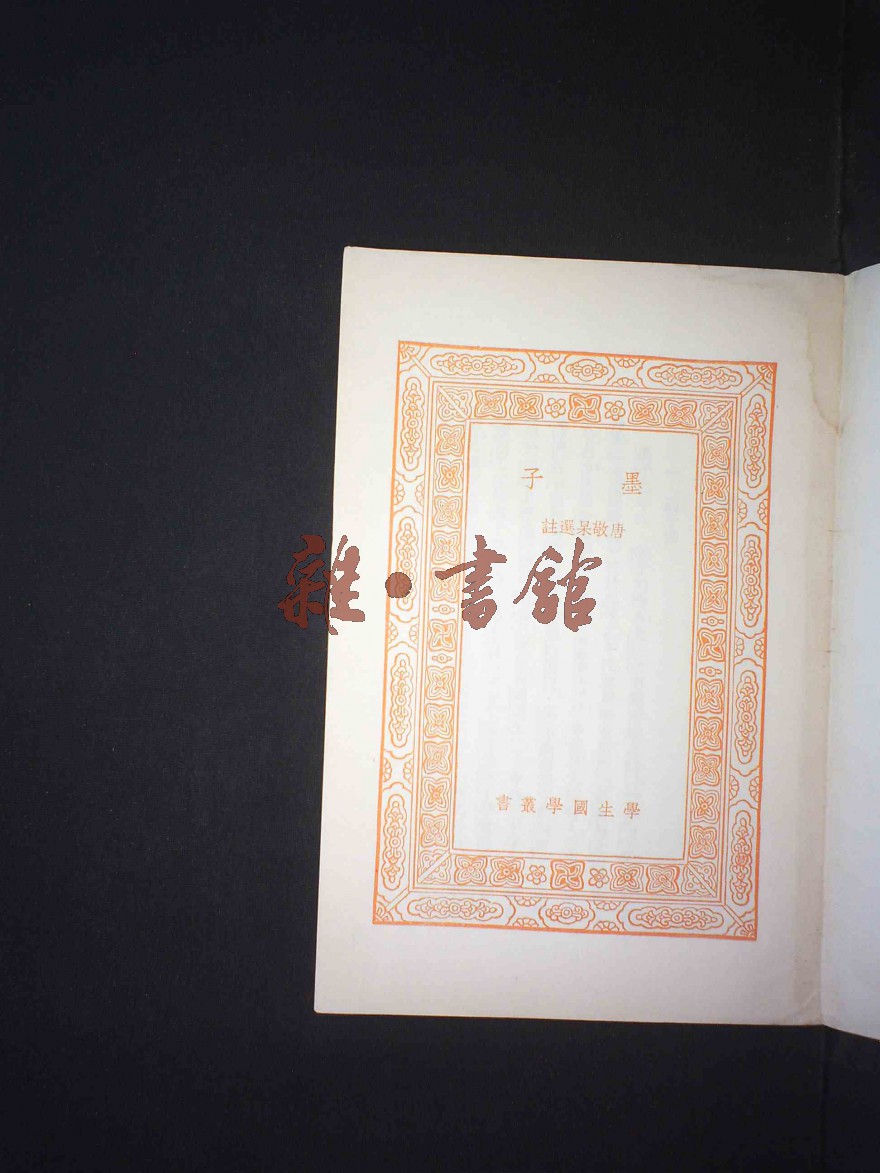 墨子
唐敬杲選註
雜·書館
學生國學叢書